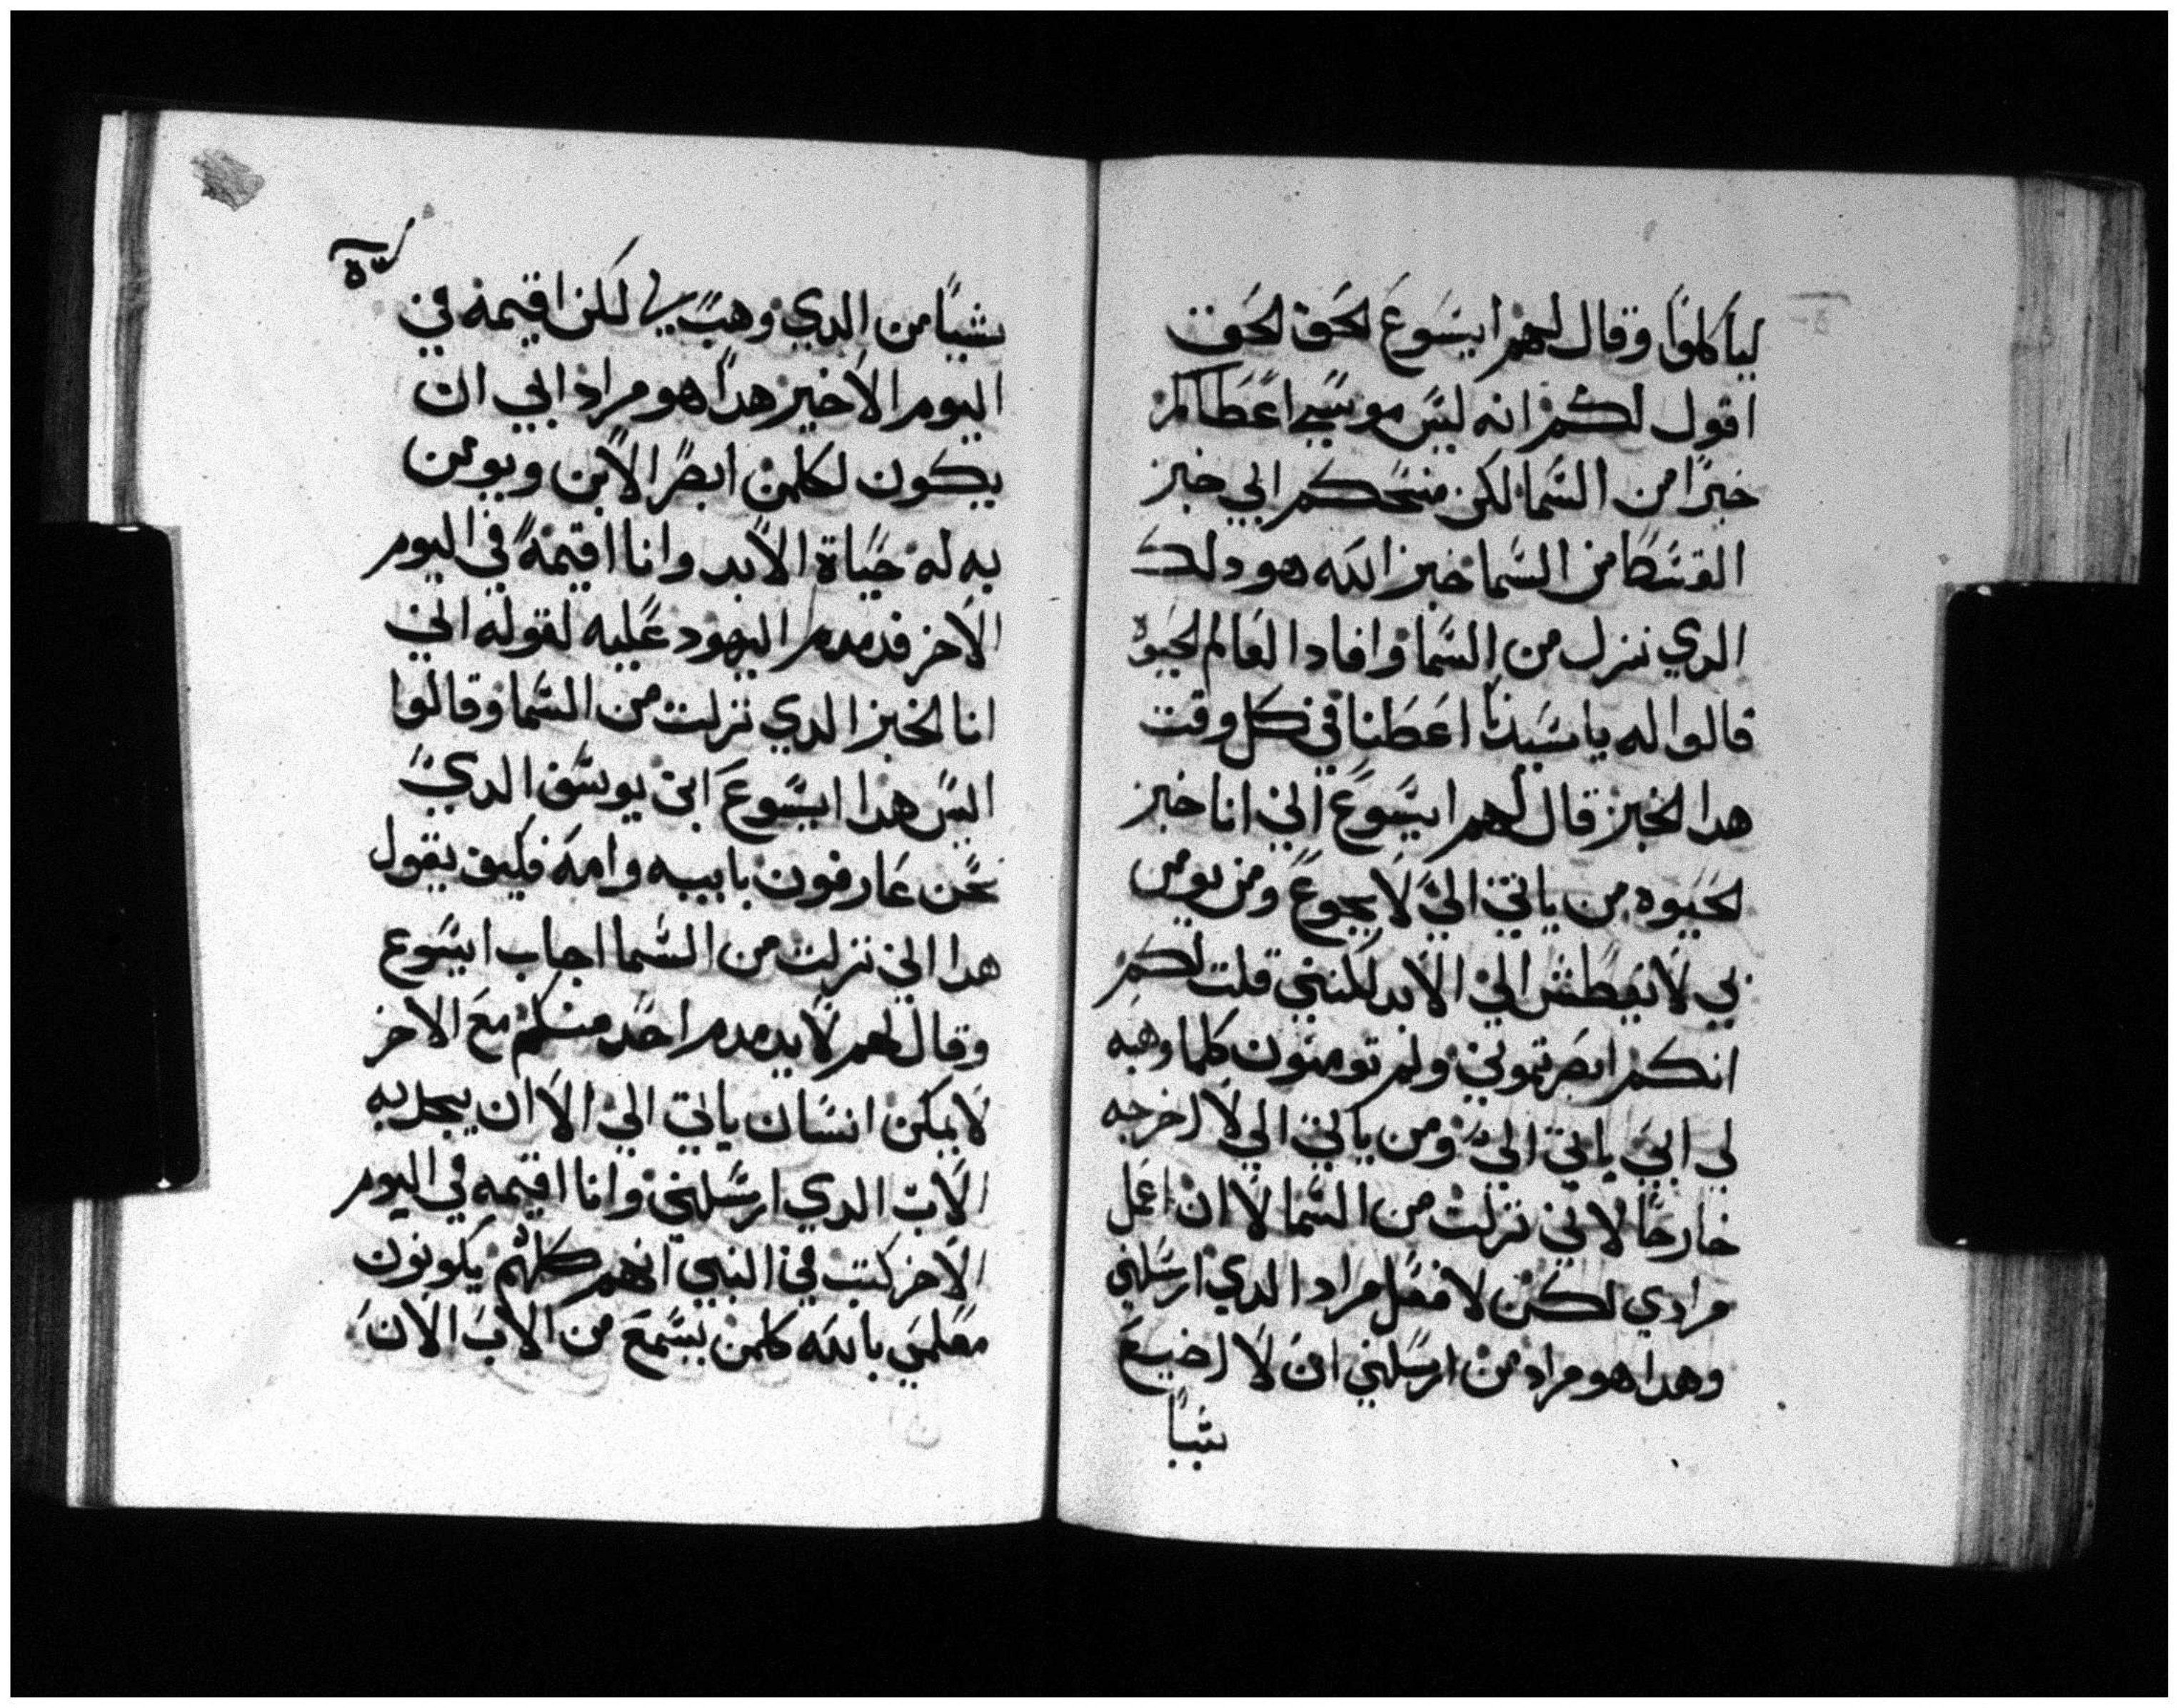 لياكلوا وقال لهم ايسوع الحق الحق
اقول لكم انه ليس موسي اعطاكم
خبزا من السما لكن منحكم ابي خبز
القسطا من السما خبز الله هو دلك
الدي نزل من السما وافاد العالم الحيوه
قالوا له يا سيدنا اعطنا في كل وقت
هدا الخبز قال لهم ايسوع اني انا خبز
الحيوه من ياتي الي لا يجوع ومن يومن
بي لا يعطش الي الابد لكنني قلت لكم
انكم ابصرتموني ولم تومنون كلما وهبه
لي ابي ياتي الي ومن ياتي الي لا اخرجه
خارجا لاني نزلت من السما لا ان اعمل
مرادي لكن لافعل مراد الدي ارسلني
وهدا هو مراد من ارسلني ان لا اضيع
شيا
شيا من الدي وهب لي لكن اقيمه في
اليوم الاخير هدا هو مراد ابي ان
يكون لكلمن ابصر الابن ويومن
به له حياة الابد وانا اقيمه في اليوم
الاخر فدمدم اليهود عليه لقوله اني
انا الخبز الدي نزلت من السما وقالوا
اليس هدا ايسوع ابن يوسف الدي
نحن عارفون بابيه وامه فكيف يقول
هدا اني نزلت من السما اجاب ايسوع
وقال لهم لا يدمدم احد منكم مع الاخر
لا يمكن انسان ياتي الي الا ان يجلبه
الاب الدي ارسلني وانا اقيمه في اليوم
الاخر كتب في النبي انهم كلهم يكونون
معلمي بالله كلمن يسمع من الاب الان